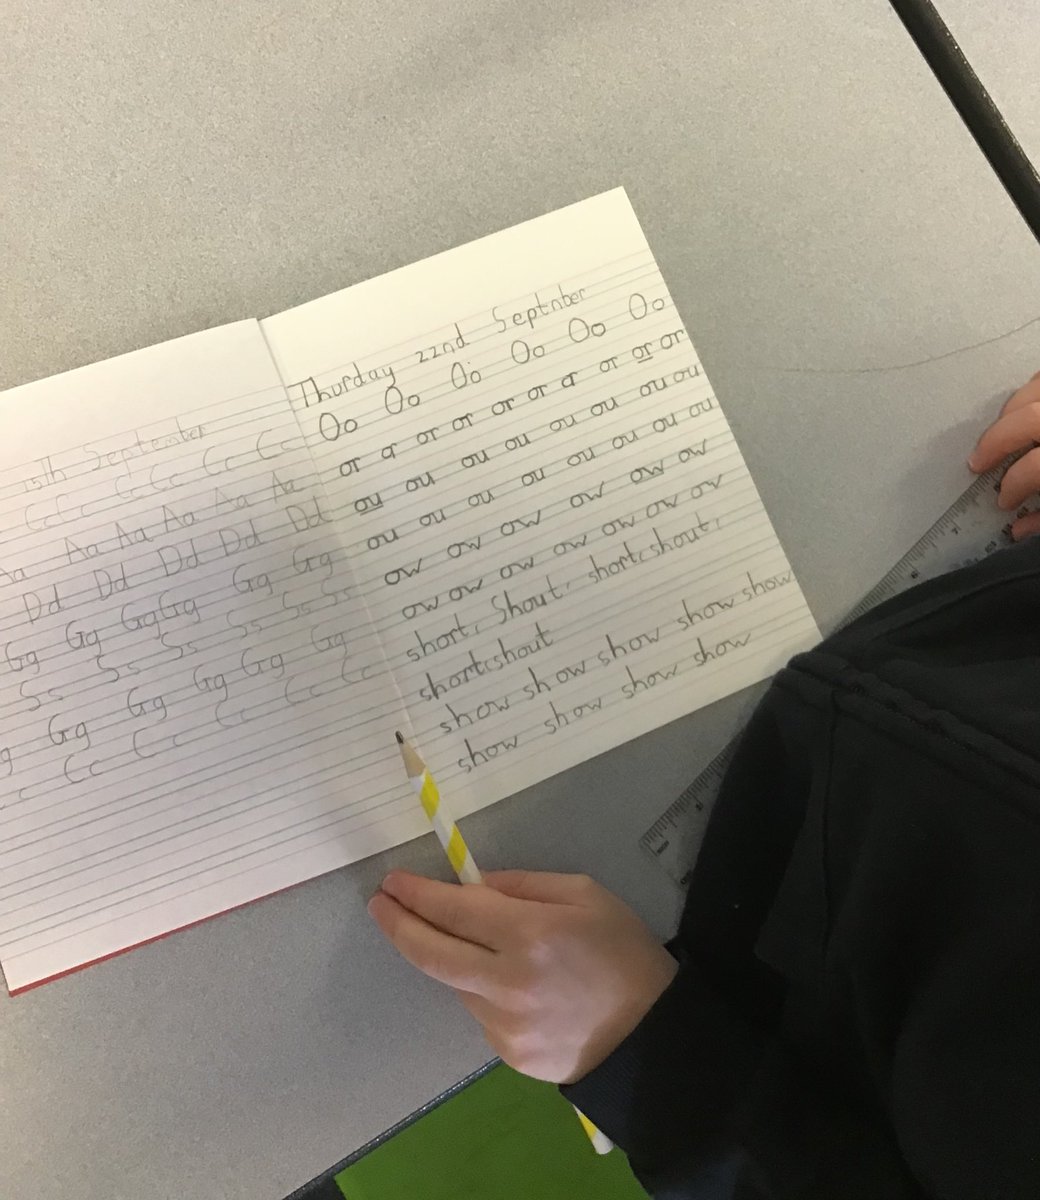 15th September
CcCc CcCc Cc Cc
Aa Aa Aa Aa Aa Aa
Dd Dd Dd Dd Dd
Gg Gg GgGg Gg Gg
Ss Ss Ss Ss Ss Ss
g Gg Gg Gg Gg Gg
c Cc Cc Cc Cc Cc
Thurday 22nd Septnber
Oo Oo Oo Oo Oo Oo
or or or or or or or or or or
ou ou ou ou ou ou ou ou
ou ou ou ou ou ou ou ou
ow ow ow ow ow ow
ow ow ow ow ow ow ow
short, Shout, short, shout,
short, shout
show show show show show
show show show show